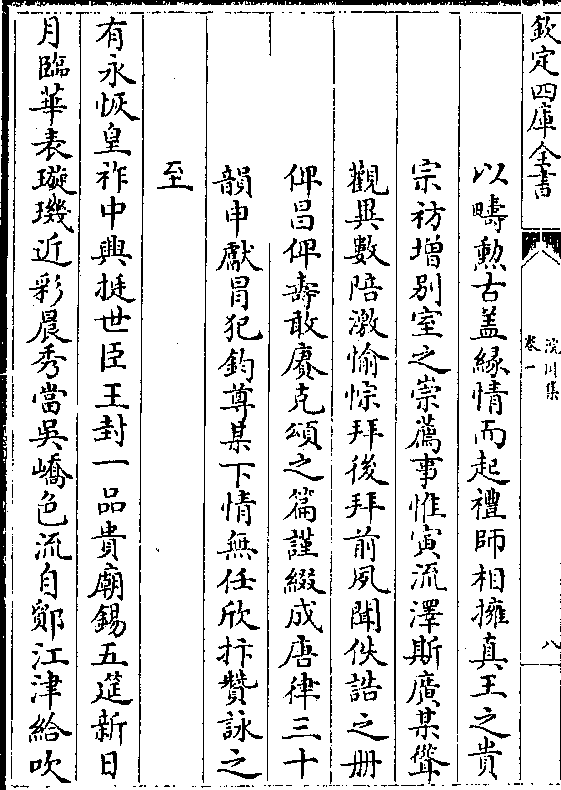 欽定四庫全書
浣川集
卷一
八
以疇勲古盖緣情而起禮師相擁真王之貴
宗祊增别室之崇薦事惟寅流澤斯廣某聳
觀異數陪激愉悰拜後拜前夙聞佚誥之册
俾昌俾壽敢賡克頌之篇謹綴成唐律三十
韻申獻冒犯鈞尊某下情無任欣抃贊詠之
至
有永恢皇祚中興挺世臣王封一品貴廟錫五筵新日
月臨華表璇璣近彩晨秀當吳嶠色流自鄮江津給吹